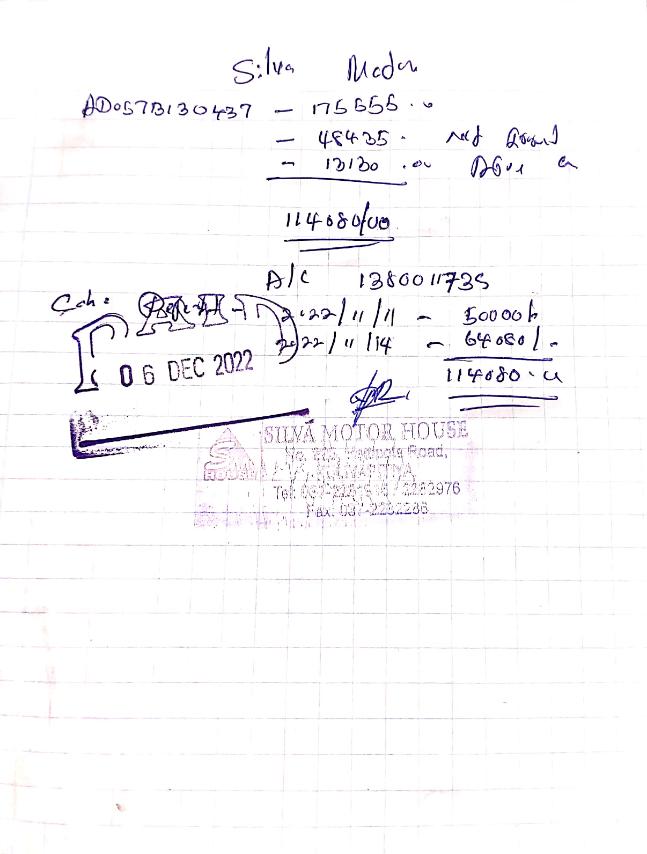 Silva Motor
AD057B130437 - 175555.
- 48435.
- 13130
114080/00
A/C 1380011735
Cash
2022/11/11 - 50000/-
2022/11/14 - 64080/-
114080.00
06 DEC 2022
SILVA MOTOR HOUSE
Road,
Tel: 2232976
Fax: 037-2232236